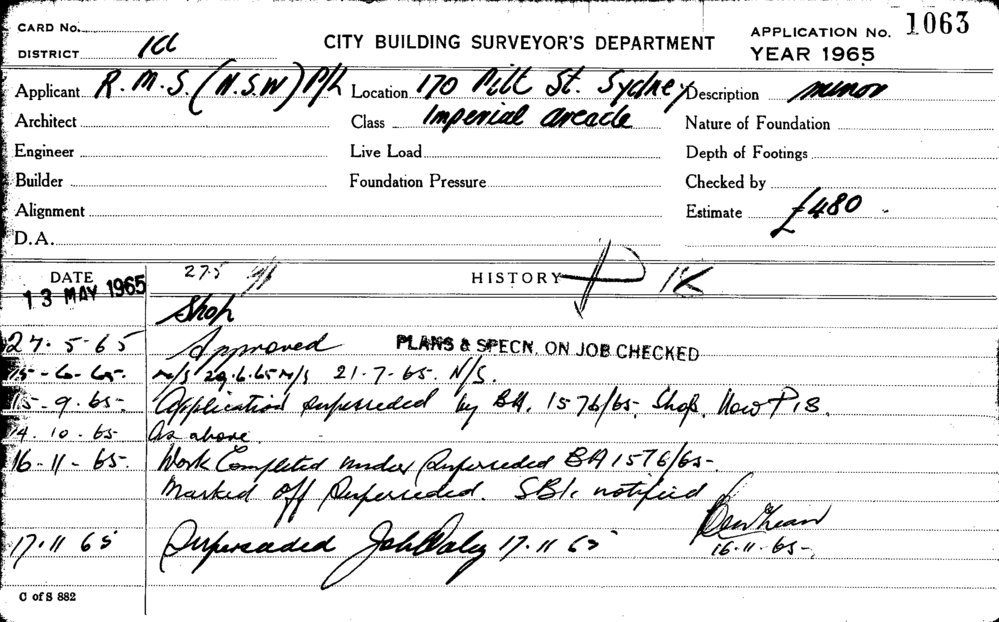 CARD No.
DISTRICT
CITY BUILDING SURVEYOR'S DEPARTMENT
APPLICATION No. 1063
YEAR 1965
Applicant R.M.S. (N.S.W) P/L Location 170 Pitt St. Sydney Description minor
Architect Class Imperial Arcade Nature of Foundation
Engineer Live Load Depth of Footings
Builder Foundation Pressure Checked by
Alignment Estimate £480
D.A.
DATE 27.5 HISTORY
13 MAY 1965
Shop
27.5.65 Approved PLANS & SPECN. ON JOB CHECKED
N/S 29.6.65 N/S 21.7.65. N/S.
15.9.65. Application superseded by BA. 1576/65. Shop. Now P18.
14.10.65 As above.
16-11-65. Work Completed under Superseded BA 1576/65-
Marked off Superseded. notified
16.11.65.
17.11 65 Superseded John Daley 17.11 65
C of S 882